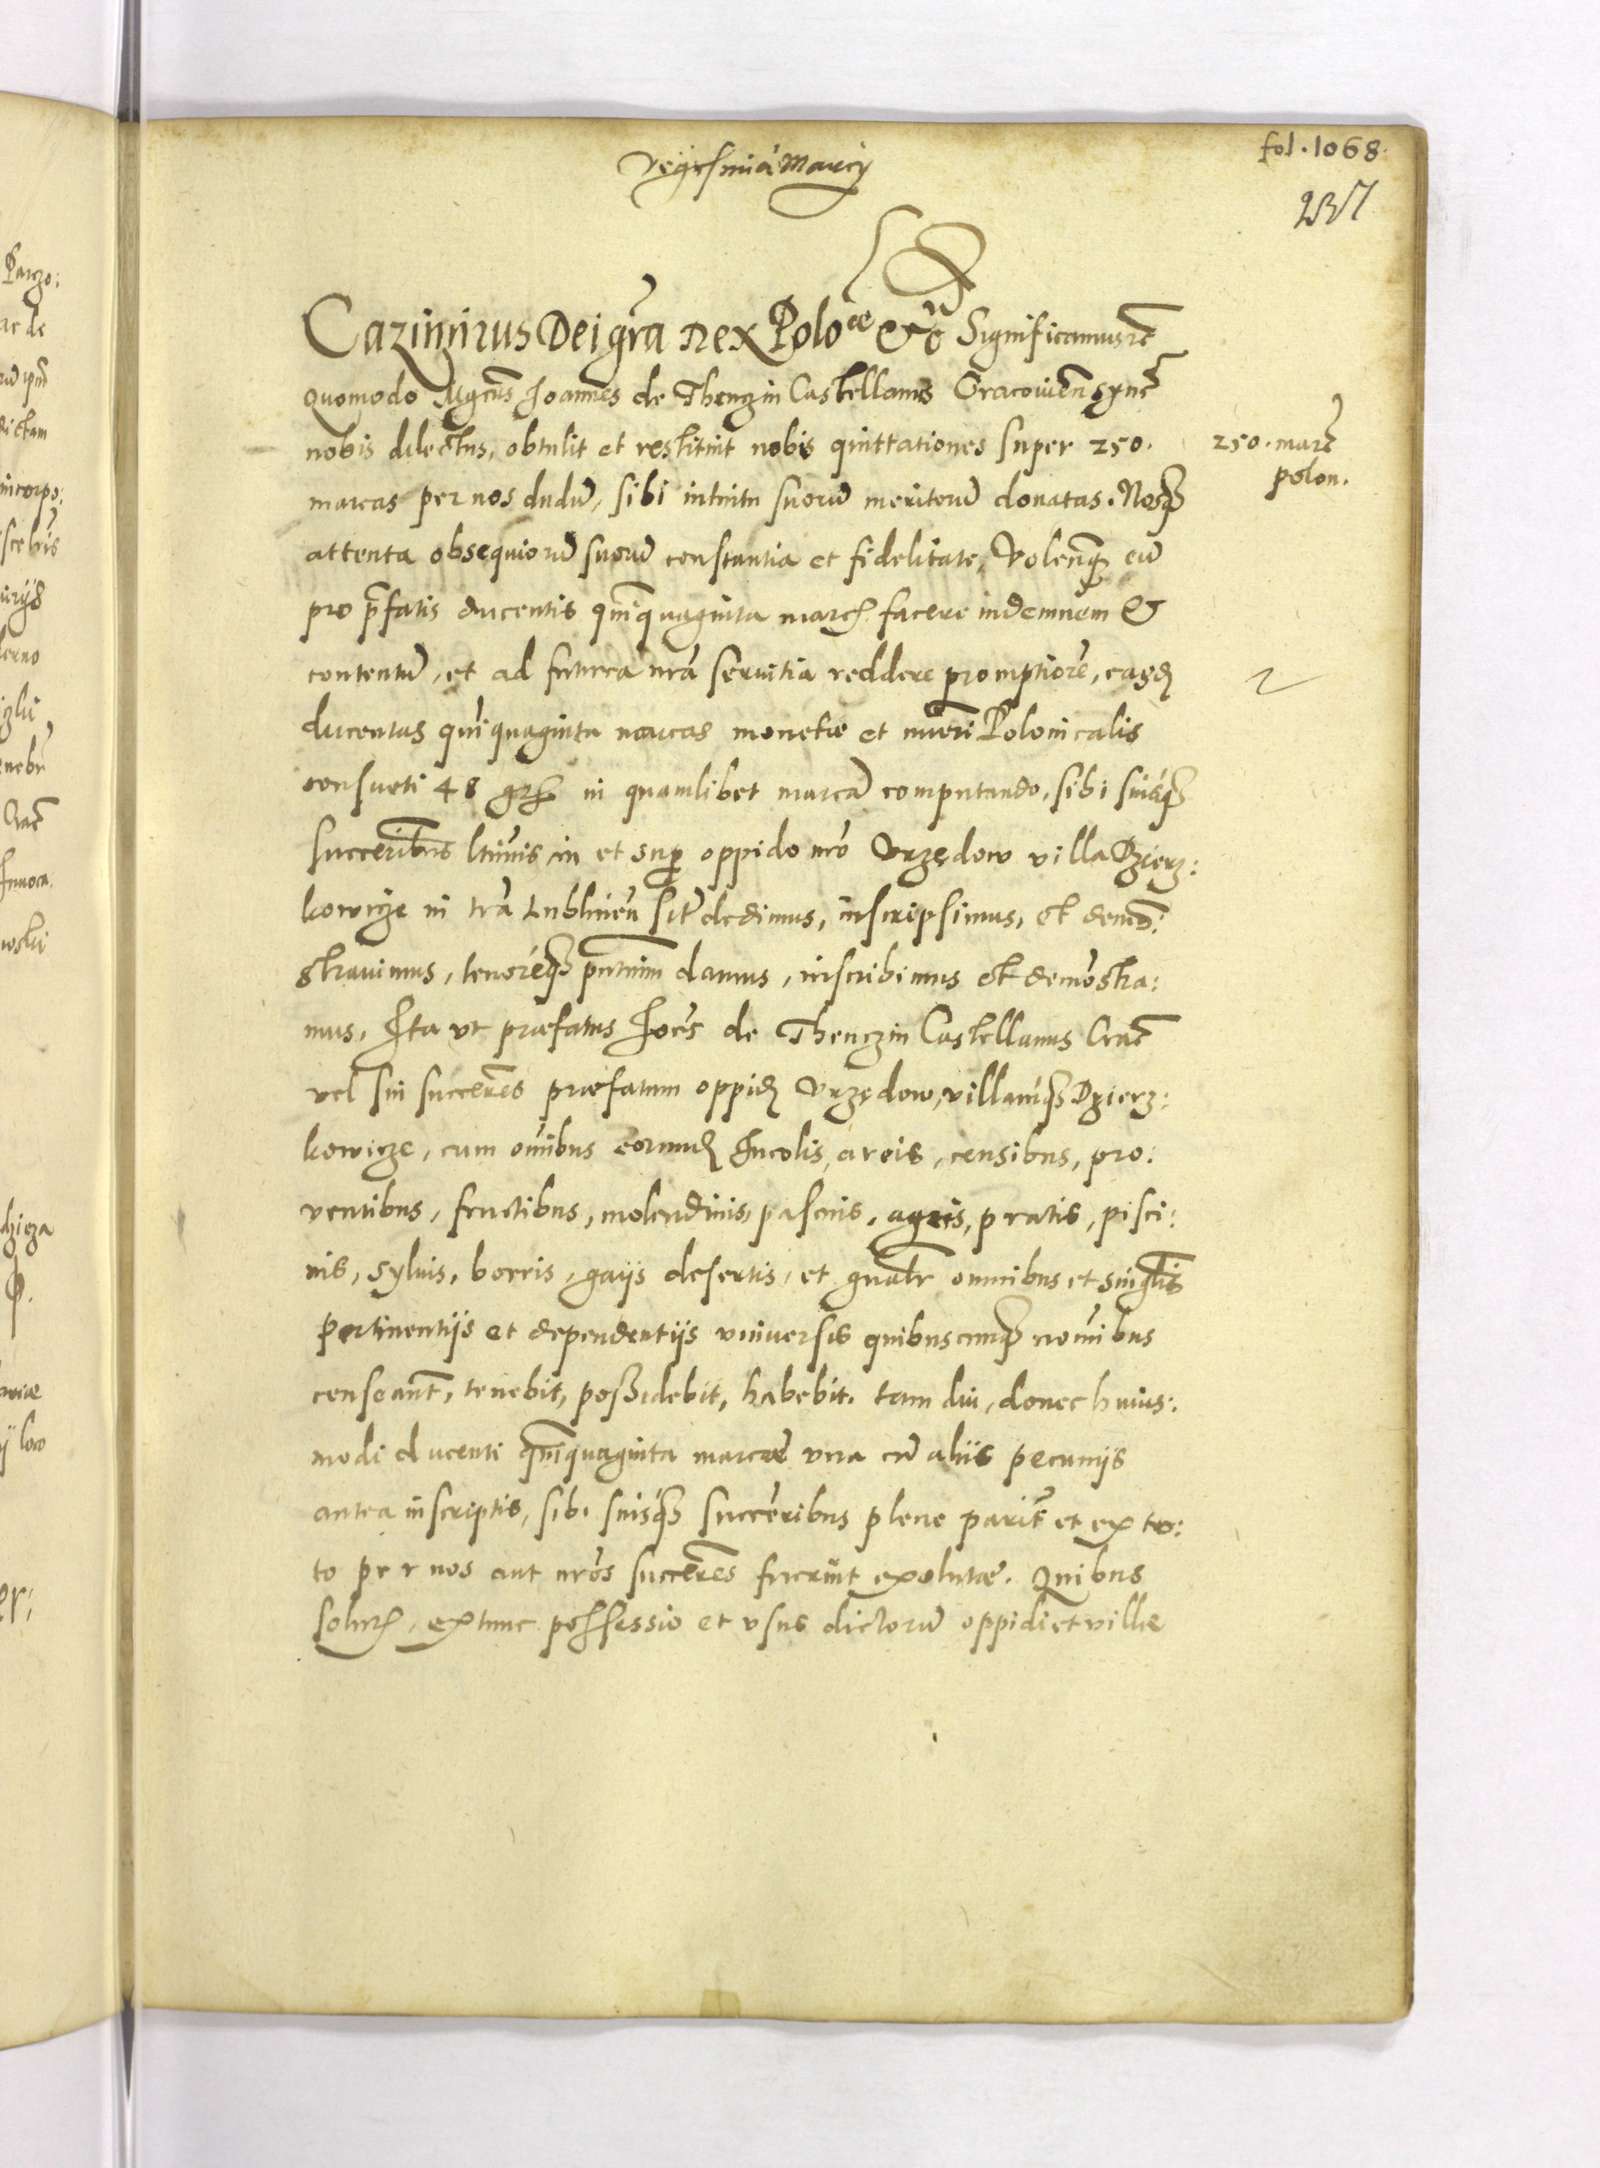 fol. 1068.
237
Cazimirus Dei gra Rex Polo^ae etc Significamus etc
quomodo Mgcus Joannes de Thenczin Castellanus Cracovien sync
nobis dilectus, obtulit et restituit nobis quittationes super 250.
250. marc
polon.
marcas per nos dudu, sibi intuitu suoru meritoru donatas. Nosq
attenta obsequioru suoru constantia et fidelitate, Volenq eu
pro pfatis ducentis quiquaginta marc facere indemnem &
contentu, et ad futura nra servitia reddere promptiore, easd
ducentas quiquaginta marcas monetae et nueri Polonicalis
consueti 48 gr in quamlibet marca computando, sibi suisq
succeribus ltimis in et sup oppido nro Urzędow villa Dzierz:
kowicze in tra Lublinen sit dedimus, inscripsimus, et demo:
stravimus, tenoreq pntium damus, inscribimus et demostra:
mus, Ita ut praefatus Joes de Thenczin Castellanus Crac
vel sui succeres praefatum oppid Urzędow, villamq Dzierz:
kowicze, cum omibus eorumd Incolis, areis, censibus, pro:
ventibus, fructibus, molendinis, pascuis, agris, pratis, pisci:
nis, sylvis, borris, gaijs desertis, et gnalr omnibus et singlis
pertinentijs et dependentijs universis quibuscumq nomibus
censeant, tenebit, possidebit, habebit. tam diu, donec huius:
modi ducenti quiquaginta marcae una cu aliis pecunijs
antea inscriptis, sibi suisq succeribus plene parit et ex to:
to per nos aut nros succeres fuerint exolutae. Quibus
solut, extunc possessio et usus dictoru oppidi et villae